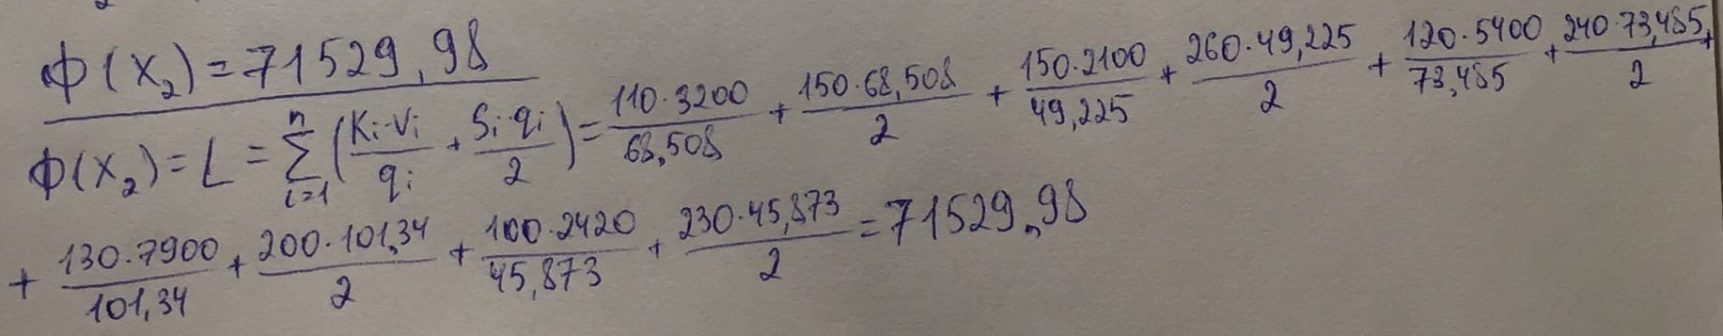 Ф(X₂) = 71529,98
Ф(X₂) = L = \sum_{i=1}^{n} (\frac{Ki·Vi}{qi} + \frac{Si·qi}{2}) = \frac{110·3200}{68,508} + \frac{150·68,508}{2} + \frac{150·2100}{49,225} + \frac{260·49,225}{2} + \frac{120·5400}{73,485} + \frac{240·73,485}{2} +
+ \frac{130·7900}{101,34} + \frac{200·101,34}{2} + \frac{100·2420}{45,873} + \frac{230·45,873}{2} = 71529,98